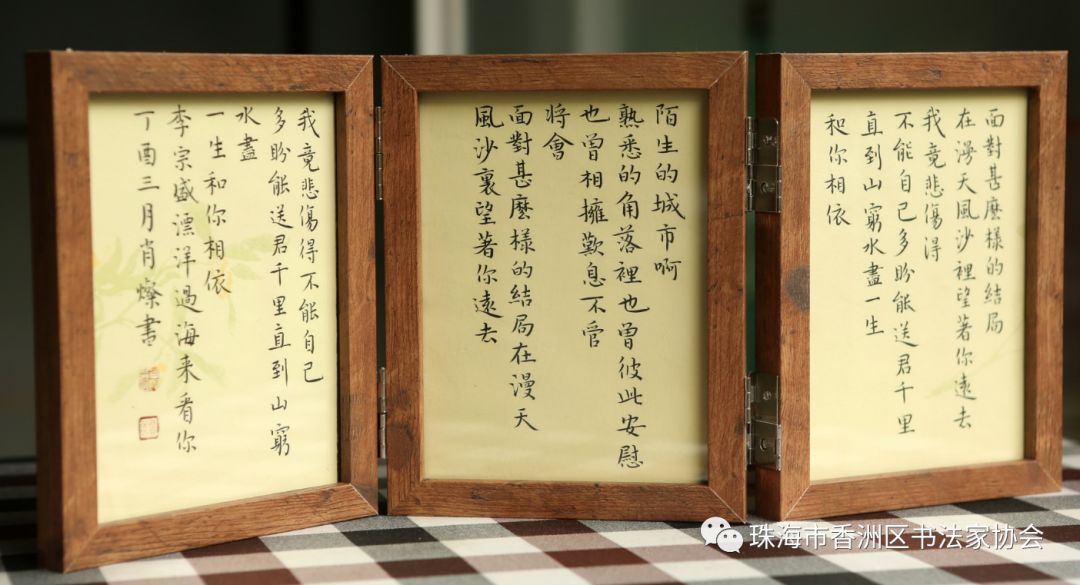 面對甚麼樣的結局
在漫天風沙裡望著你遠去
我竟悲傷得
不能自己多盼能送君千里
直到山窮水盡一生
和你相依
陌生的城市啊
熟悉的角落裡也曾彼此安慰
也曾相擁歎息不管
將會
面對甚麼樣的結局在漫天
風沙裏望著你遠去
我竟悲傷得不能自己
多盼能送君千里直到山窮
水盡
一生和你相依
李宗盛漂洋過海来看你
丁酉三月肖燦書
珠海市香洲区书法家协会